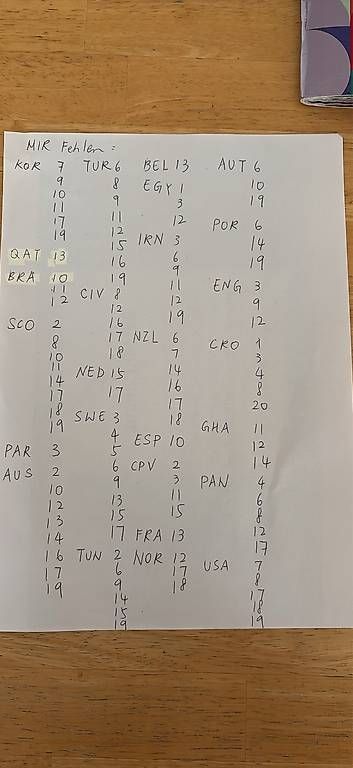 MIR Fehlen:
KOR 7
9
10
11
17
19
QAT 13
BRA 10
11
12
SCO 2
8
10
11
14
17
18
19
PAR 3
AUS 2
10
12
13
14
16
17
19
TUR 6
8
9
11
12
15
16
19
CIV 8
12
16
17
18
NED 15
17
SWE 3
4
5
6
9
13
15
17
TUN 2
6
9
14
15
19
BEL 13
EGY 1
3
12
IRN 3
6
9
11
12
19
NZL 6
7
14
16
17
18
ESP 10
CPV 2
3
11
15
FRA 13
NOR 12
17
18
AUT 6
10
19
POR 6
14
19
ENG 3
9
12
CRO 1
3
4
8
20
GHA 11
12
14
PAN 4
6
8
12
17
USA 7
8
17
18
19